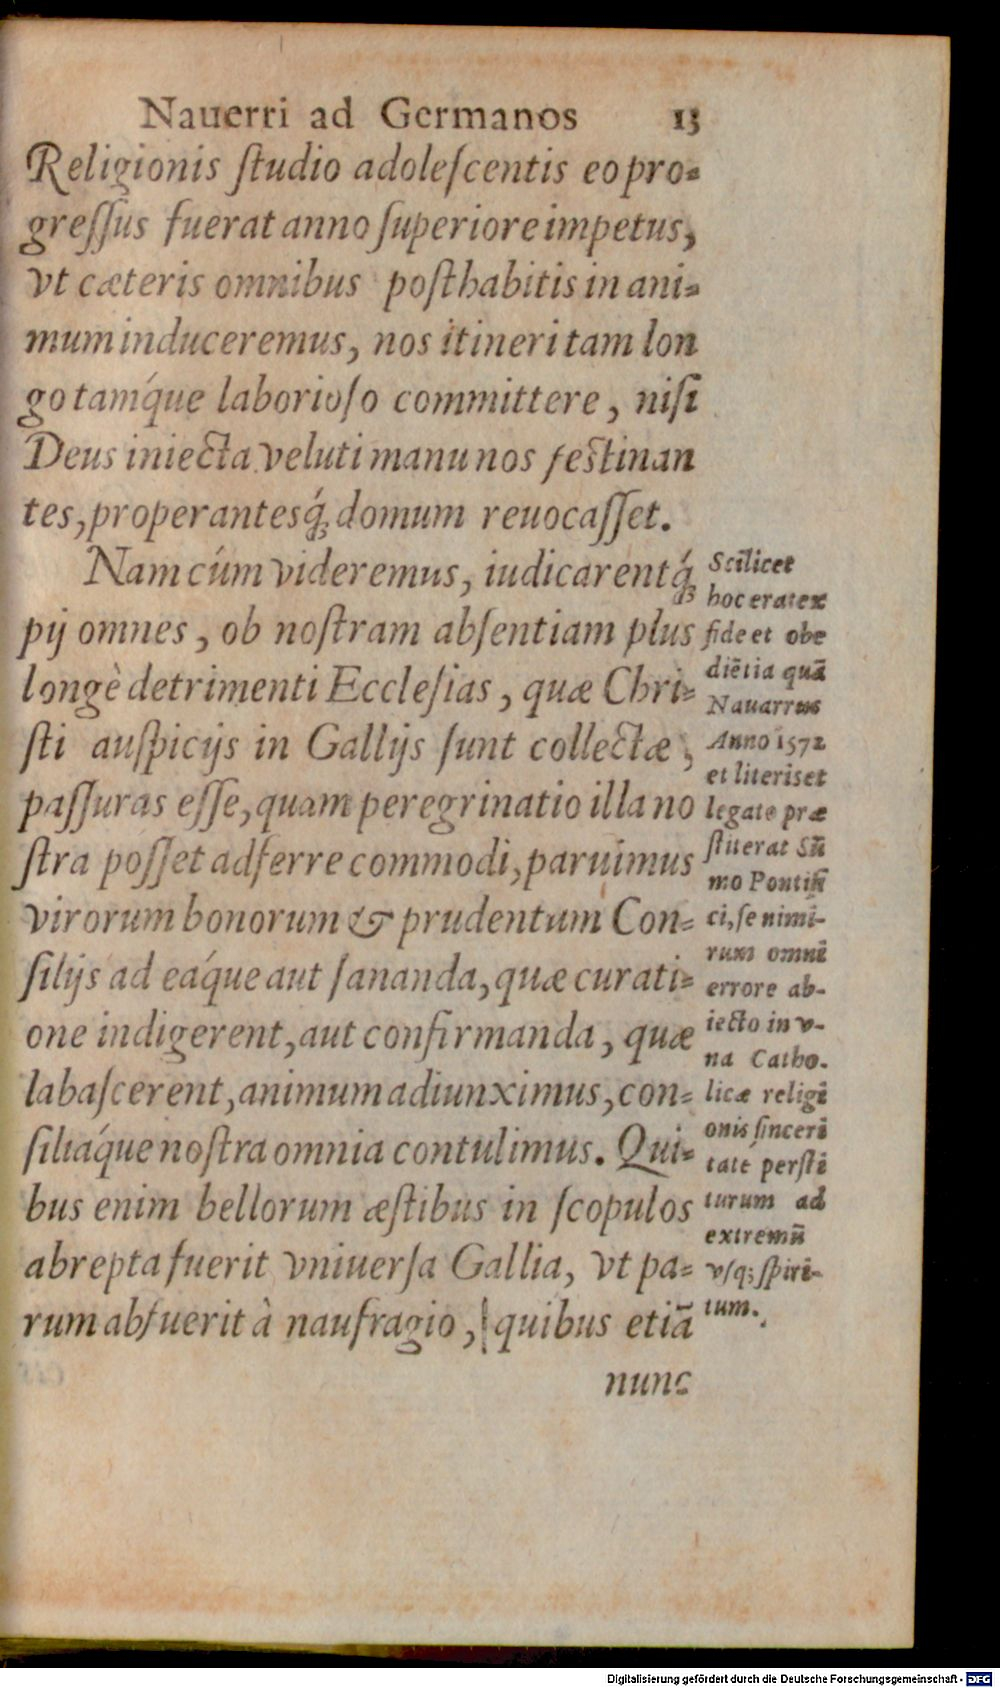 Nauerri ad Germanos 13
Religionis ſtudio adoleſcentis eo pro-
greſſus fuerat anno ſuperiore impetus,
vt cæteris omnibus poſthabitis in ani-
mum induceremus, nos itineri tam lon
go tamq́ue laborioſo committere, niſi
Deus iniecta veluti manu nos feſtinan
tes, properantesq́; domum reuocaſſet.
Nam cúm videremus, iudicarentq́;
pij omnes, ob noſtram abſentiam plus
longè detrimenti Eccleſias, quæ Chri-
ſti auſpicijs in Gallijs ſunt collectæ,
paſſuras eſſe, quam peregrinatio illa no
ſtra poſſet adferre commodi, paruimus
virorum bonorum & prudentum Con-
ſilijs ad eáque aut ſananda, quæ curati-
one indigerent, aut confirmanda, quæ
labaſcerent, animum adiunximus, con-
ſiliáque noſtra omnia contulimus. Qui-
bus enim bellorum æſtibus in ſcopulos
abrepta fuerit vniuerſa Gallia, vt pa-
rum abfuerit à naufragio, quibus etiã
nunc
Scilicet
hoc erat ex
fide et obe
diẽtia quã
Nauarrus
Anno 1572
et literis et
legato præ
ſtiterat Sũ
mo Pontifi
ci, ſe nimi-
rum omni
errore ab-
iecto in v-
na Catho-
licæ religi
onis ſinceri
tate perſti
turum ad
extremũ
vſq; ſpiri-
tum.
Digitalisierung gefördert durch die Deutsche Forschungsgemeinschaft - DFG